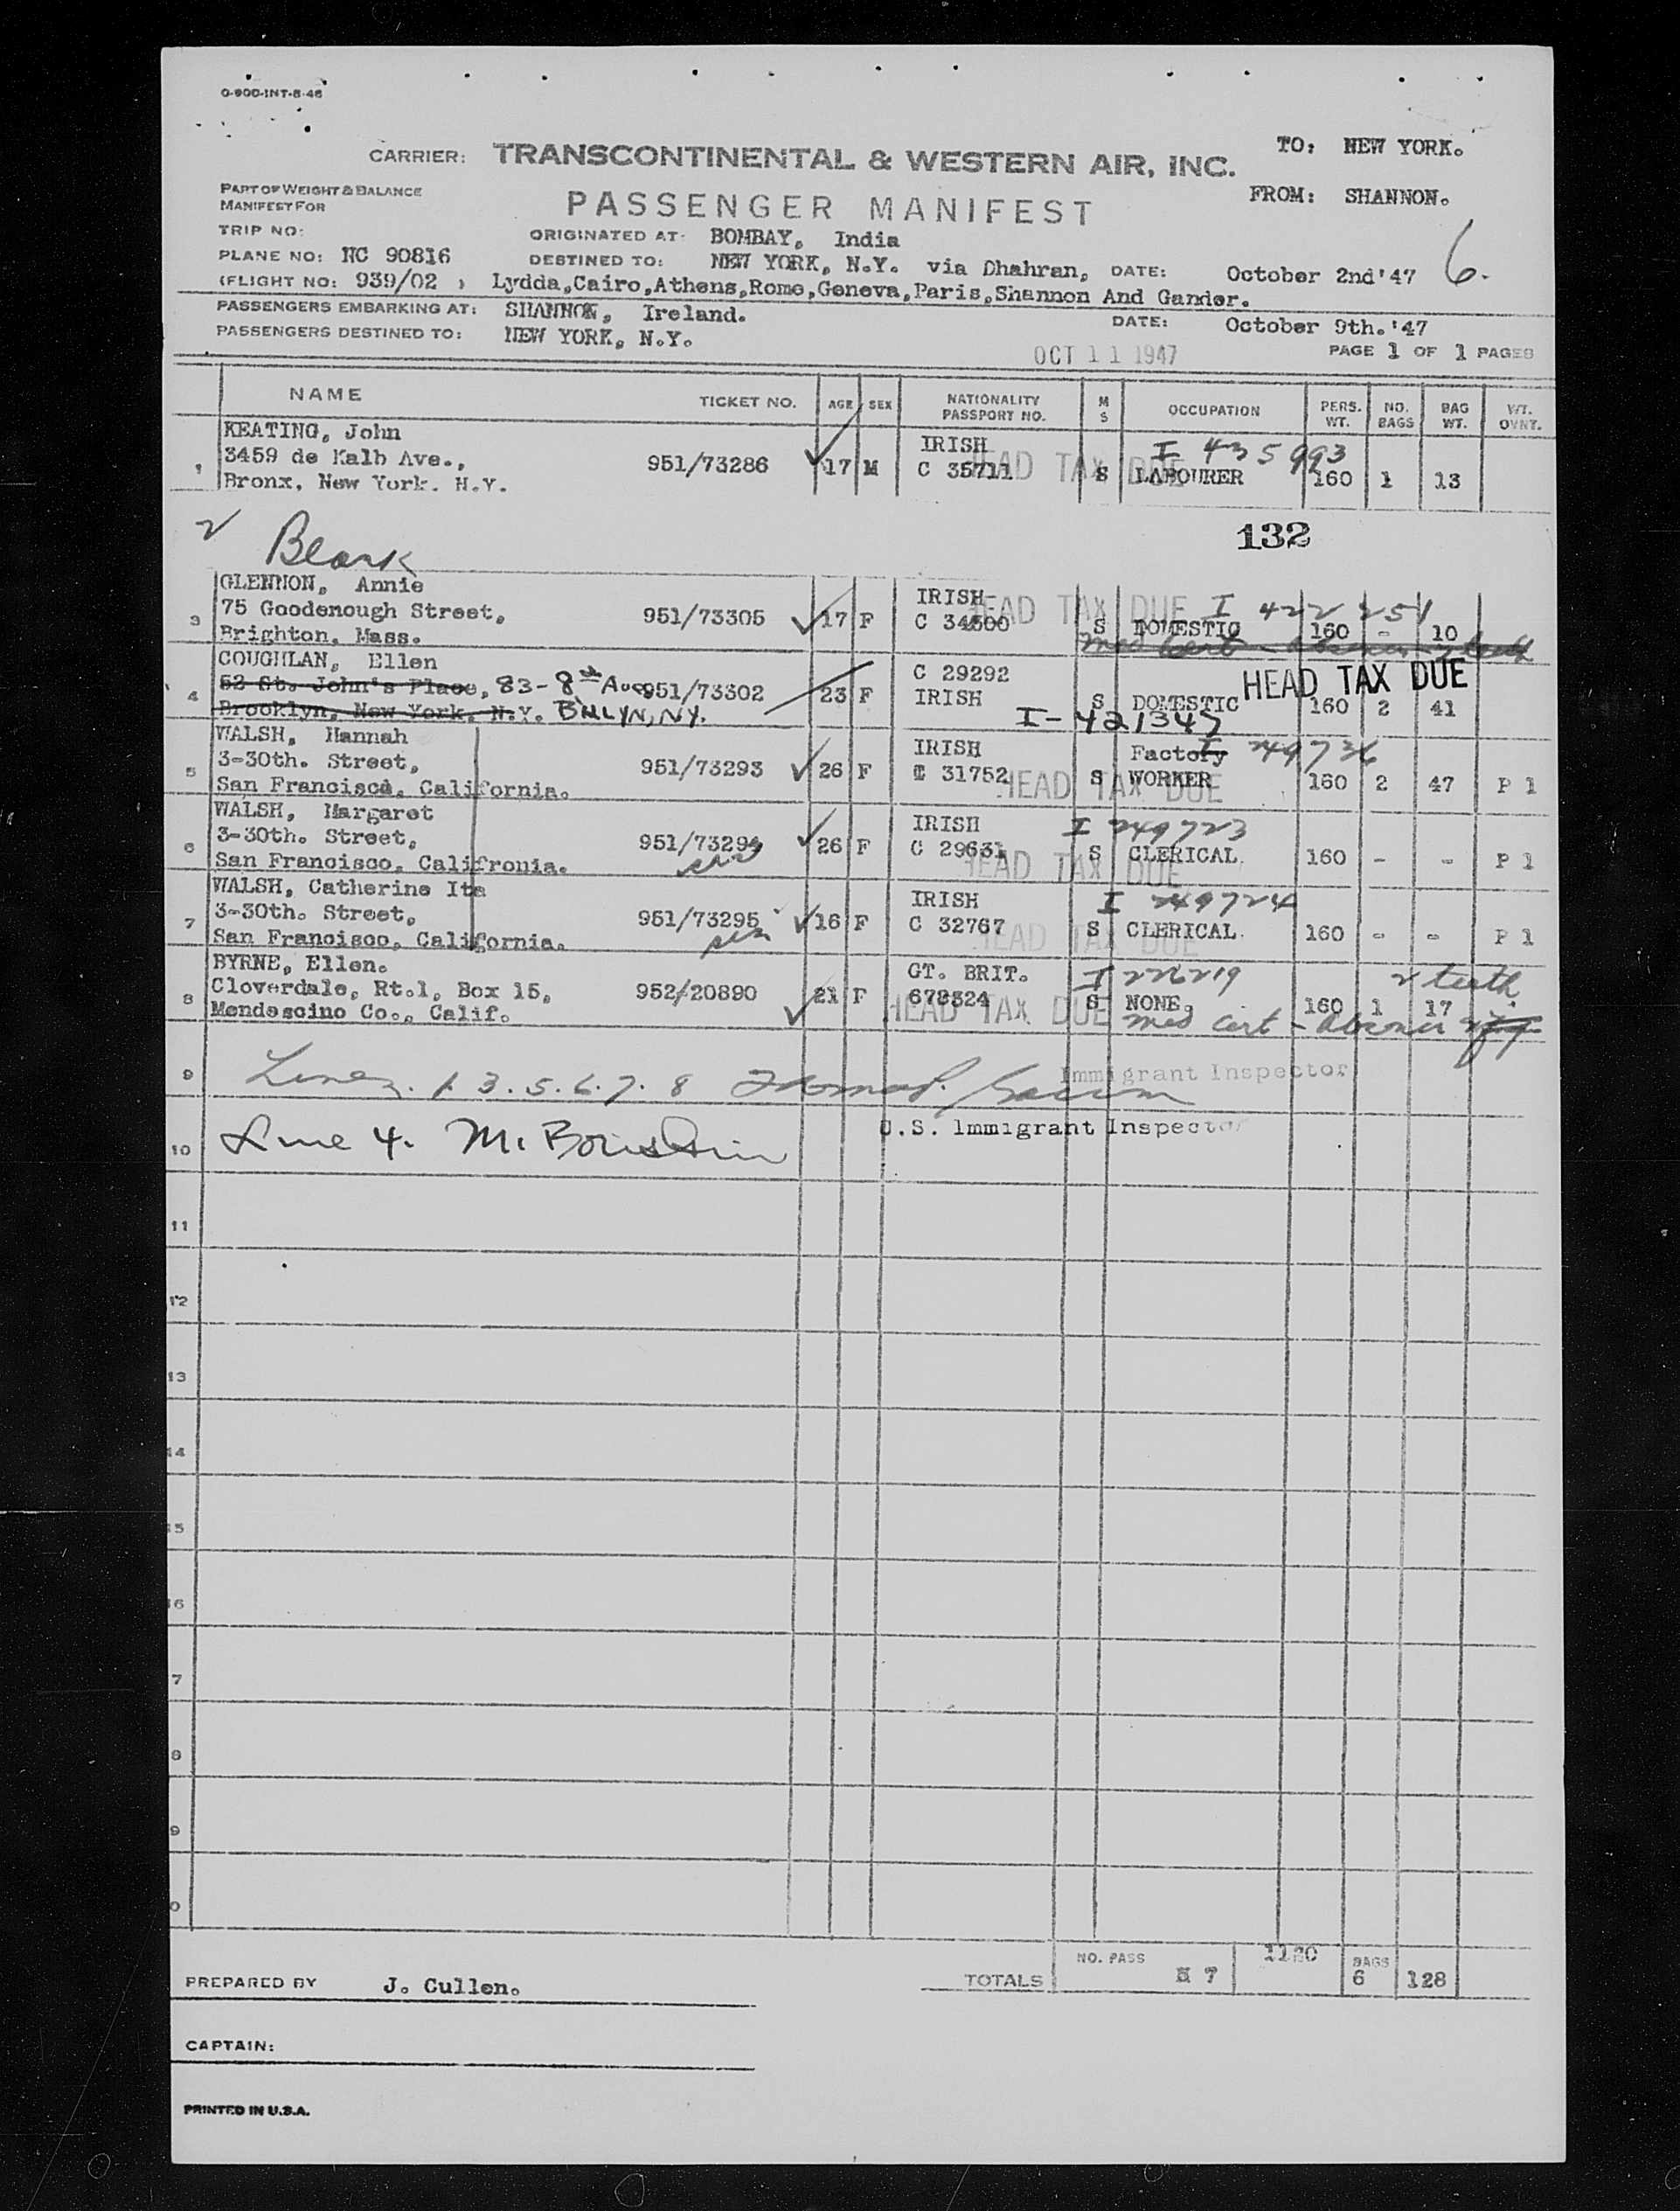 O-900-INT-8-46
CARRIER: TRANSCONTINENTAL & WESTERN AIR, INC.
TO: NEW YORK.
PART OF WEIGHT & BALANCE
MANIFEST FOR
PASSENGER MANIFEST
FROM: SHANNON.
TRIP NO:
ORIGINATED AT: BOMBAY, India
PLANE NO: NC 90816
DESTINED TO: NEW YORK, N.Y. via Dhahran, DATE: October 2nd'47 6.
(FLIGHT NO: 939/02 ) Lydda,Cairo,Athens,Rome,Geneva,Paris,Shannon And Gander.
PASSENGERS EMBARKING AT: SHANNON, Ireland.
DATE: October 9th.'47
PASSENGERS DESTINED TO: NEW YORK, N.Y.
OCT 11 1947
PAGE 1 OF 1 PAGES
NAME TICKET NO. AGE SEX NATIONALITY PASSPORT NO. M S OCCUPATION PERS. WT. NO. BAGS BAG WT. WT. OVNT.
KEATING, John IRISH I 435993
3459 de Kalb Ave., 951/73286 17 M C 35711 S LABOURER 160 1 13
HEAD TAX DUE
1 Bronx, New York. N.Y.
2 132
GLENNON, Annie IRISH HEAD TAX DUE I 422251
3 75 Goodenough Street, 951/73305 17 F C 34500 S DOMESTIC 160 - 10
Brighton, Mass. Med Cert - absence teeth
COUGHLAN, Ellen C 29292 HEAD TAX DUE
4 52 St. John's Place, 83-8th Ave 951/73302 23 F IRISH S DOMESTIC 160 2 41
Brooklyn, New York. N.Y. BKLYN, NY. I-421347
WALSH, Hannah IRISH Factory I 249736
5 3-30th. Street, 951/73293 26 F C 31752 S WORKER 160 2 47 P 1
San Francisco, California. HEAD TAX DUE
WALSH, Margaret IRISH I 249723
6 3-30th. Street, 951/73294 26 F C 29631 S CLERICAL 160 - - P 1
San Francisco, Califronia. HEAD TAX DUE
WALSH, Catherine Ita IRISH I 249724
7 3-30th. Street, 951/73295 16 F C 32767 S CLERICAL. 160 - - P 1
San Francisco, California. HEAD TAX DUE
BYRNE, Ellen. GT. BRIT. I 226219 2 teeth
8 Cloverdale, Rt.1, Box 15, 952/20890 21 F 678524 S NONE. 160 1 17
Mendescino Co., Calif. HEAD TAX DUE med cert - absence of
9 Lines. 1. 3. 5. 6. 7. 8 Immigrant Inspector
10 Line 4. U.S. Immigrant Inspector
11
12
13
14
15
16
7
8
9
0
PREPARED BY J. Cullen. TOTALS NO. PASS 7 1120 BAGS 6 128
CAPTAIN:
PRINTED IN U.S.A.